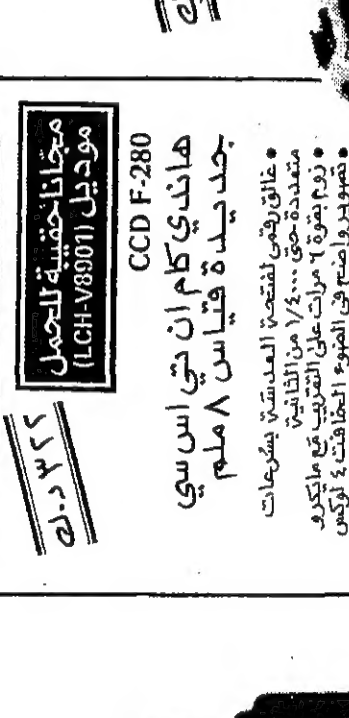 د.ك
٣٢٢ د.ك
مجانا حقيبة للحمل
موديل (LCH-V8901)
CCD F-280
هاندي كام ان تي اس سي
جديدة قياس ٨ ملم
• غالق رقمي لفتحة العدسة بسرعات
متعددة حتى ١/٤٠٠٠ من الثانية
• زووم بقوة ٦ مرات على التقريب مع مايكرو
• تصوير واضح في الضوء الخافت ٤ لوكس